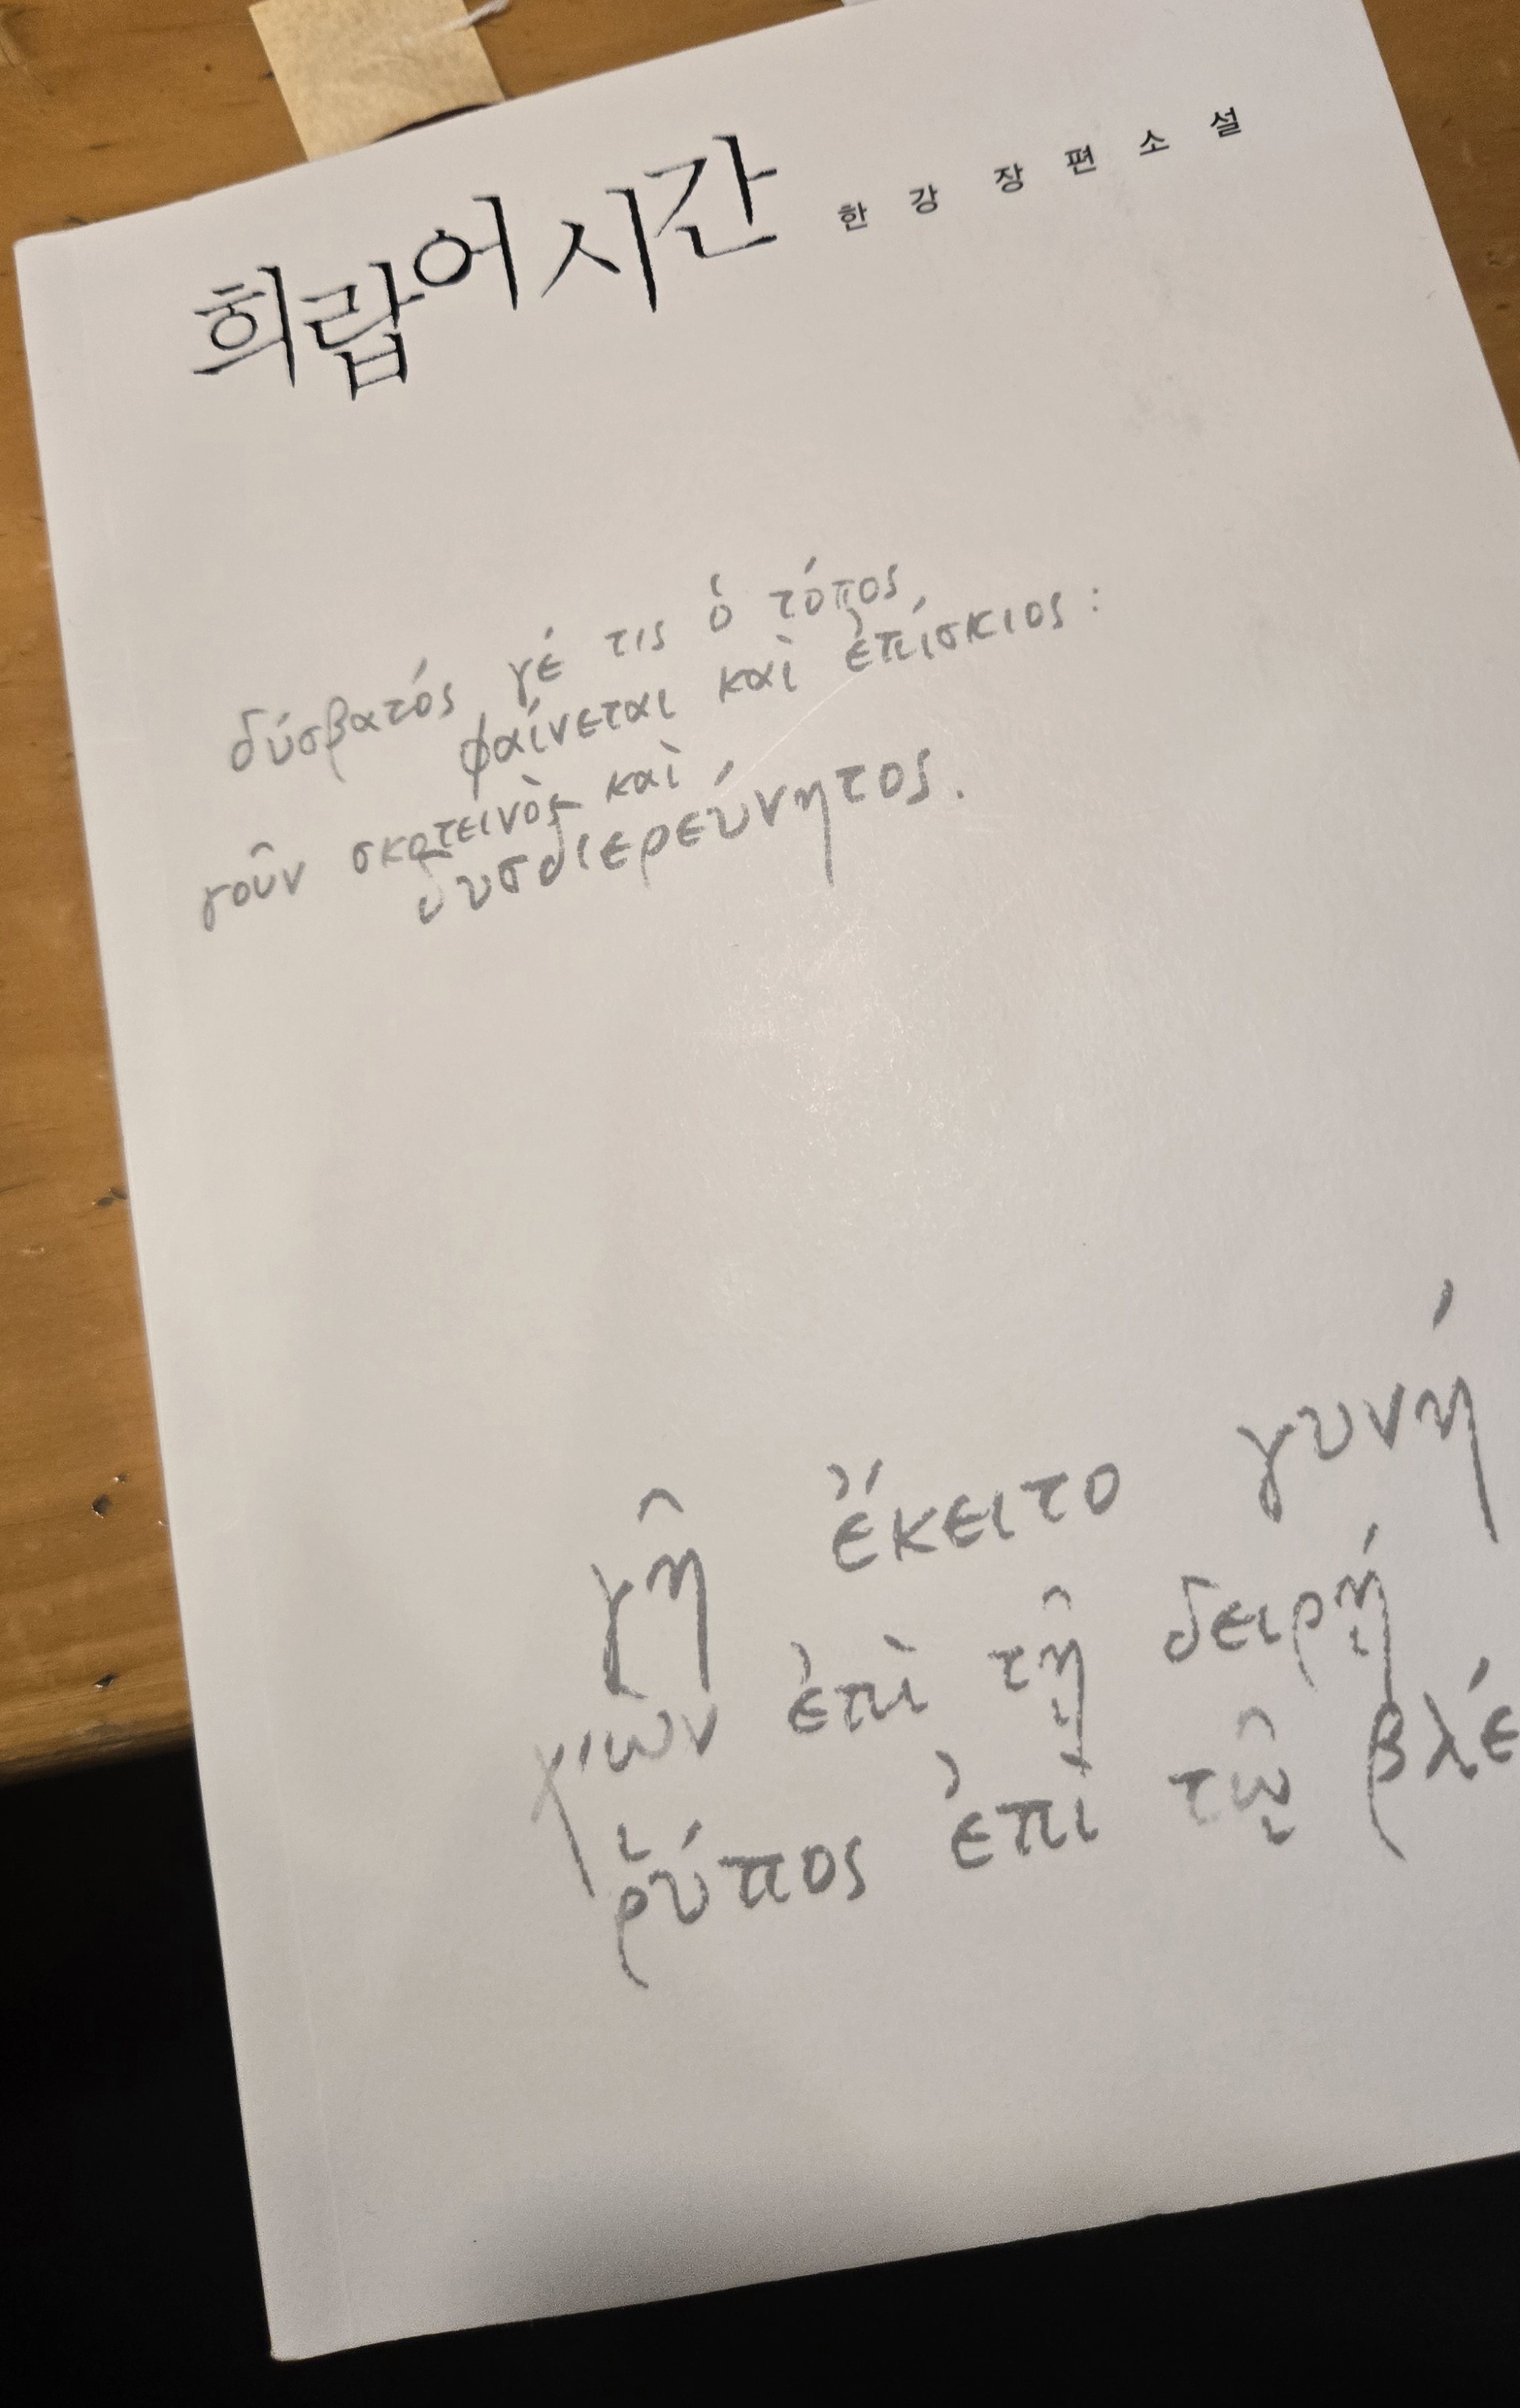 희랍어 시간
한강 장편소설
δύσβατός γέ τις ὁ τόπος
φαίνεται καὶ ἐπίσκιος :
γοῦν σκοτεινὸς καὶ
δυσδιερεύνητος.
γῆ ἔκειτο γυνή
χιὼν ἐπὶ τῇ δειρῇ
ῥύπος ἐπὶ τῷ βλέ